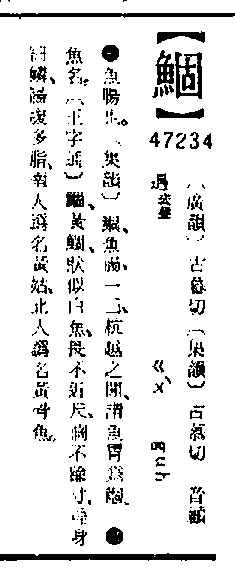 【鯝】
47234
〔廣韻〕古慕切〔集韻〕古慕切 音顧
過去聲 ㄍㄨ̀ guh
●魚腸也。〔集韻〕鯝魚腸。一曰、杭越之間、謂魚胃爲鯝。●
魚名。〔正字通〕鯝黃鯝、狀似白魚、長不近尺、闊不踰寸、扁身
細鱗、腸腹多脂、南人謂名黃姑、北人謂名黃骨魚。